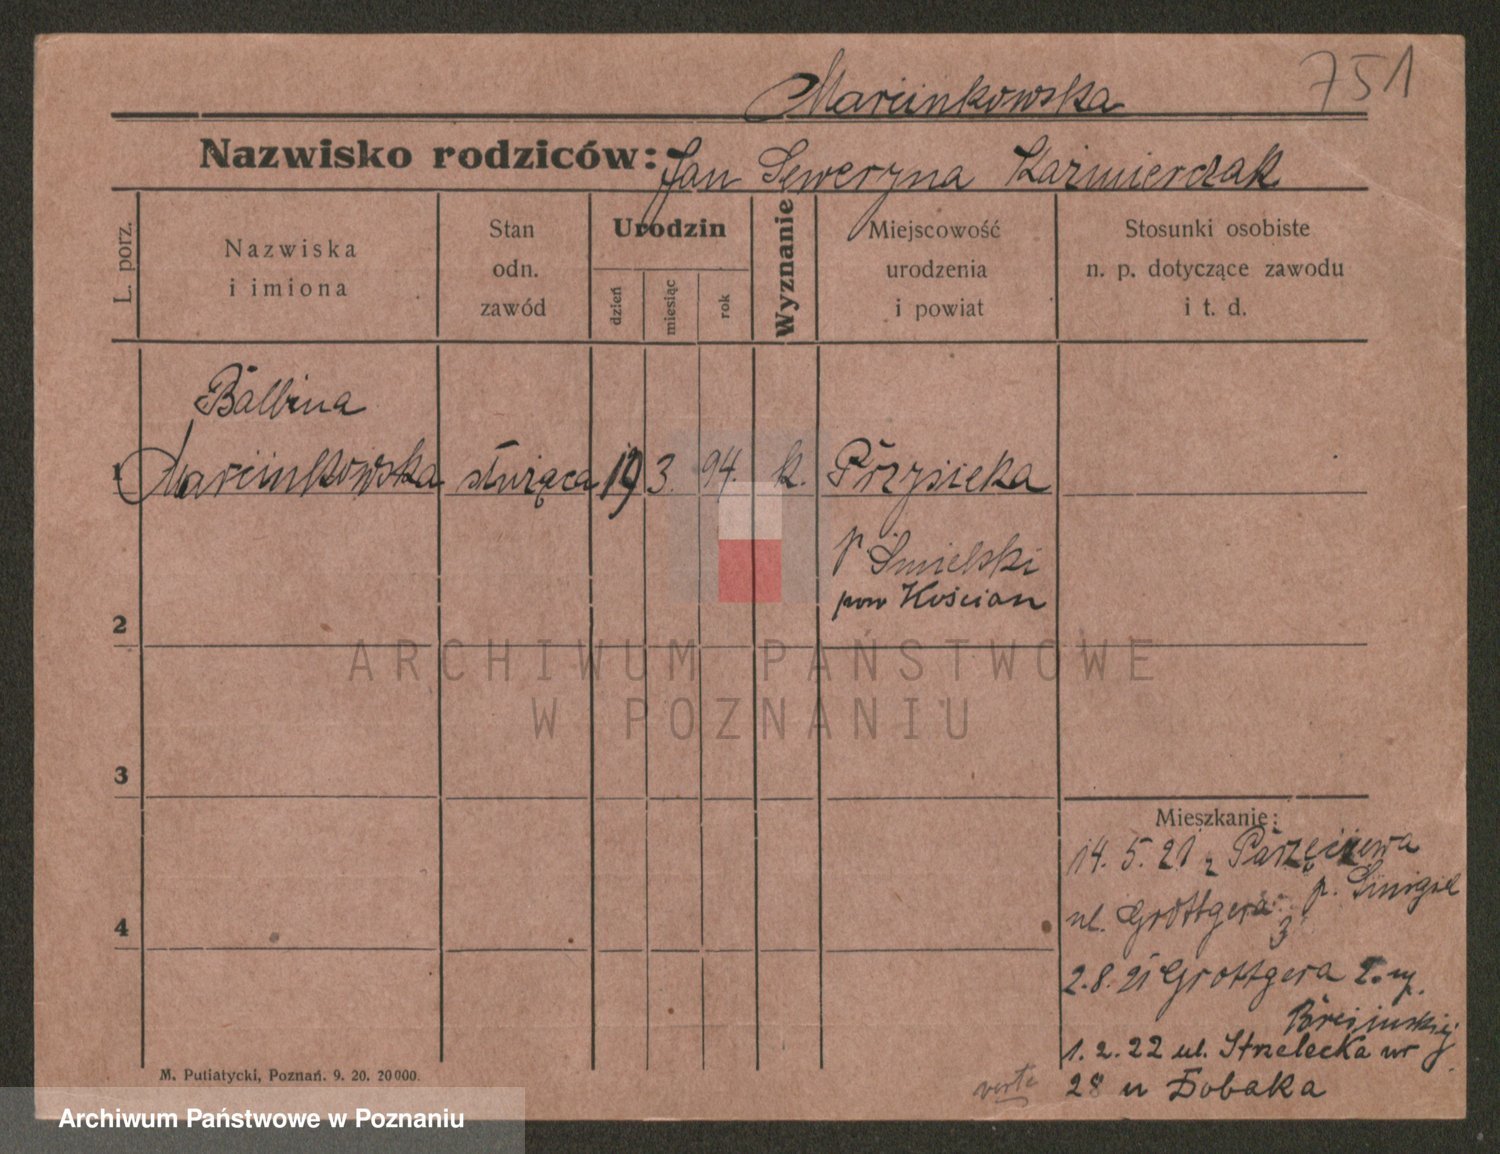 751
Marcinkowska
Nazwisko rodziców: Jan Seweryna Kaźmierczak
L. porz.
Nazwiska
i imiona
Stan
odn.
zawód
Urodzin
dzień
miesiąc
rok
Wyznanie
Miejscowość
urodzenia
i powiat
Stosunki osobiste
n. p. dotyczące zawodu
i t. d.
Balbina
1 Marcinkowska służąca 19 3. 94. k. Przysieka
p. Śmielski
pow Kościan
2
ARCHIWUM PAŃSTWOWE
W POZNANIU
3
Mieszkanie:
14. 5. 21 z Parzęczewa
p. Śmigiel
ul. Grottgera 3
4
2. 8. 21 Grottgera 2.
1. 2. 22 ul. Strzelecka nr
28 u Bobaka
verte
M. Putiatycki, Poznań. 9. 20. 20000.
Archiwum Państwowe w Poznaniu